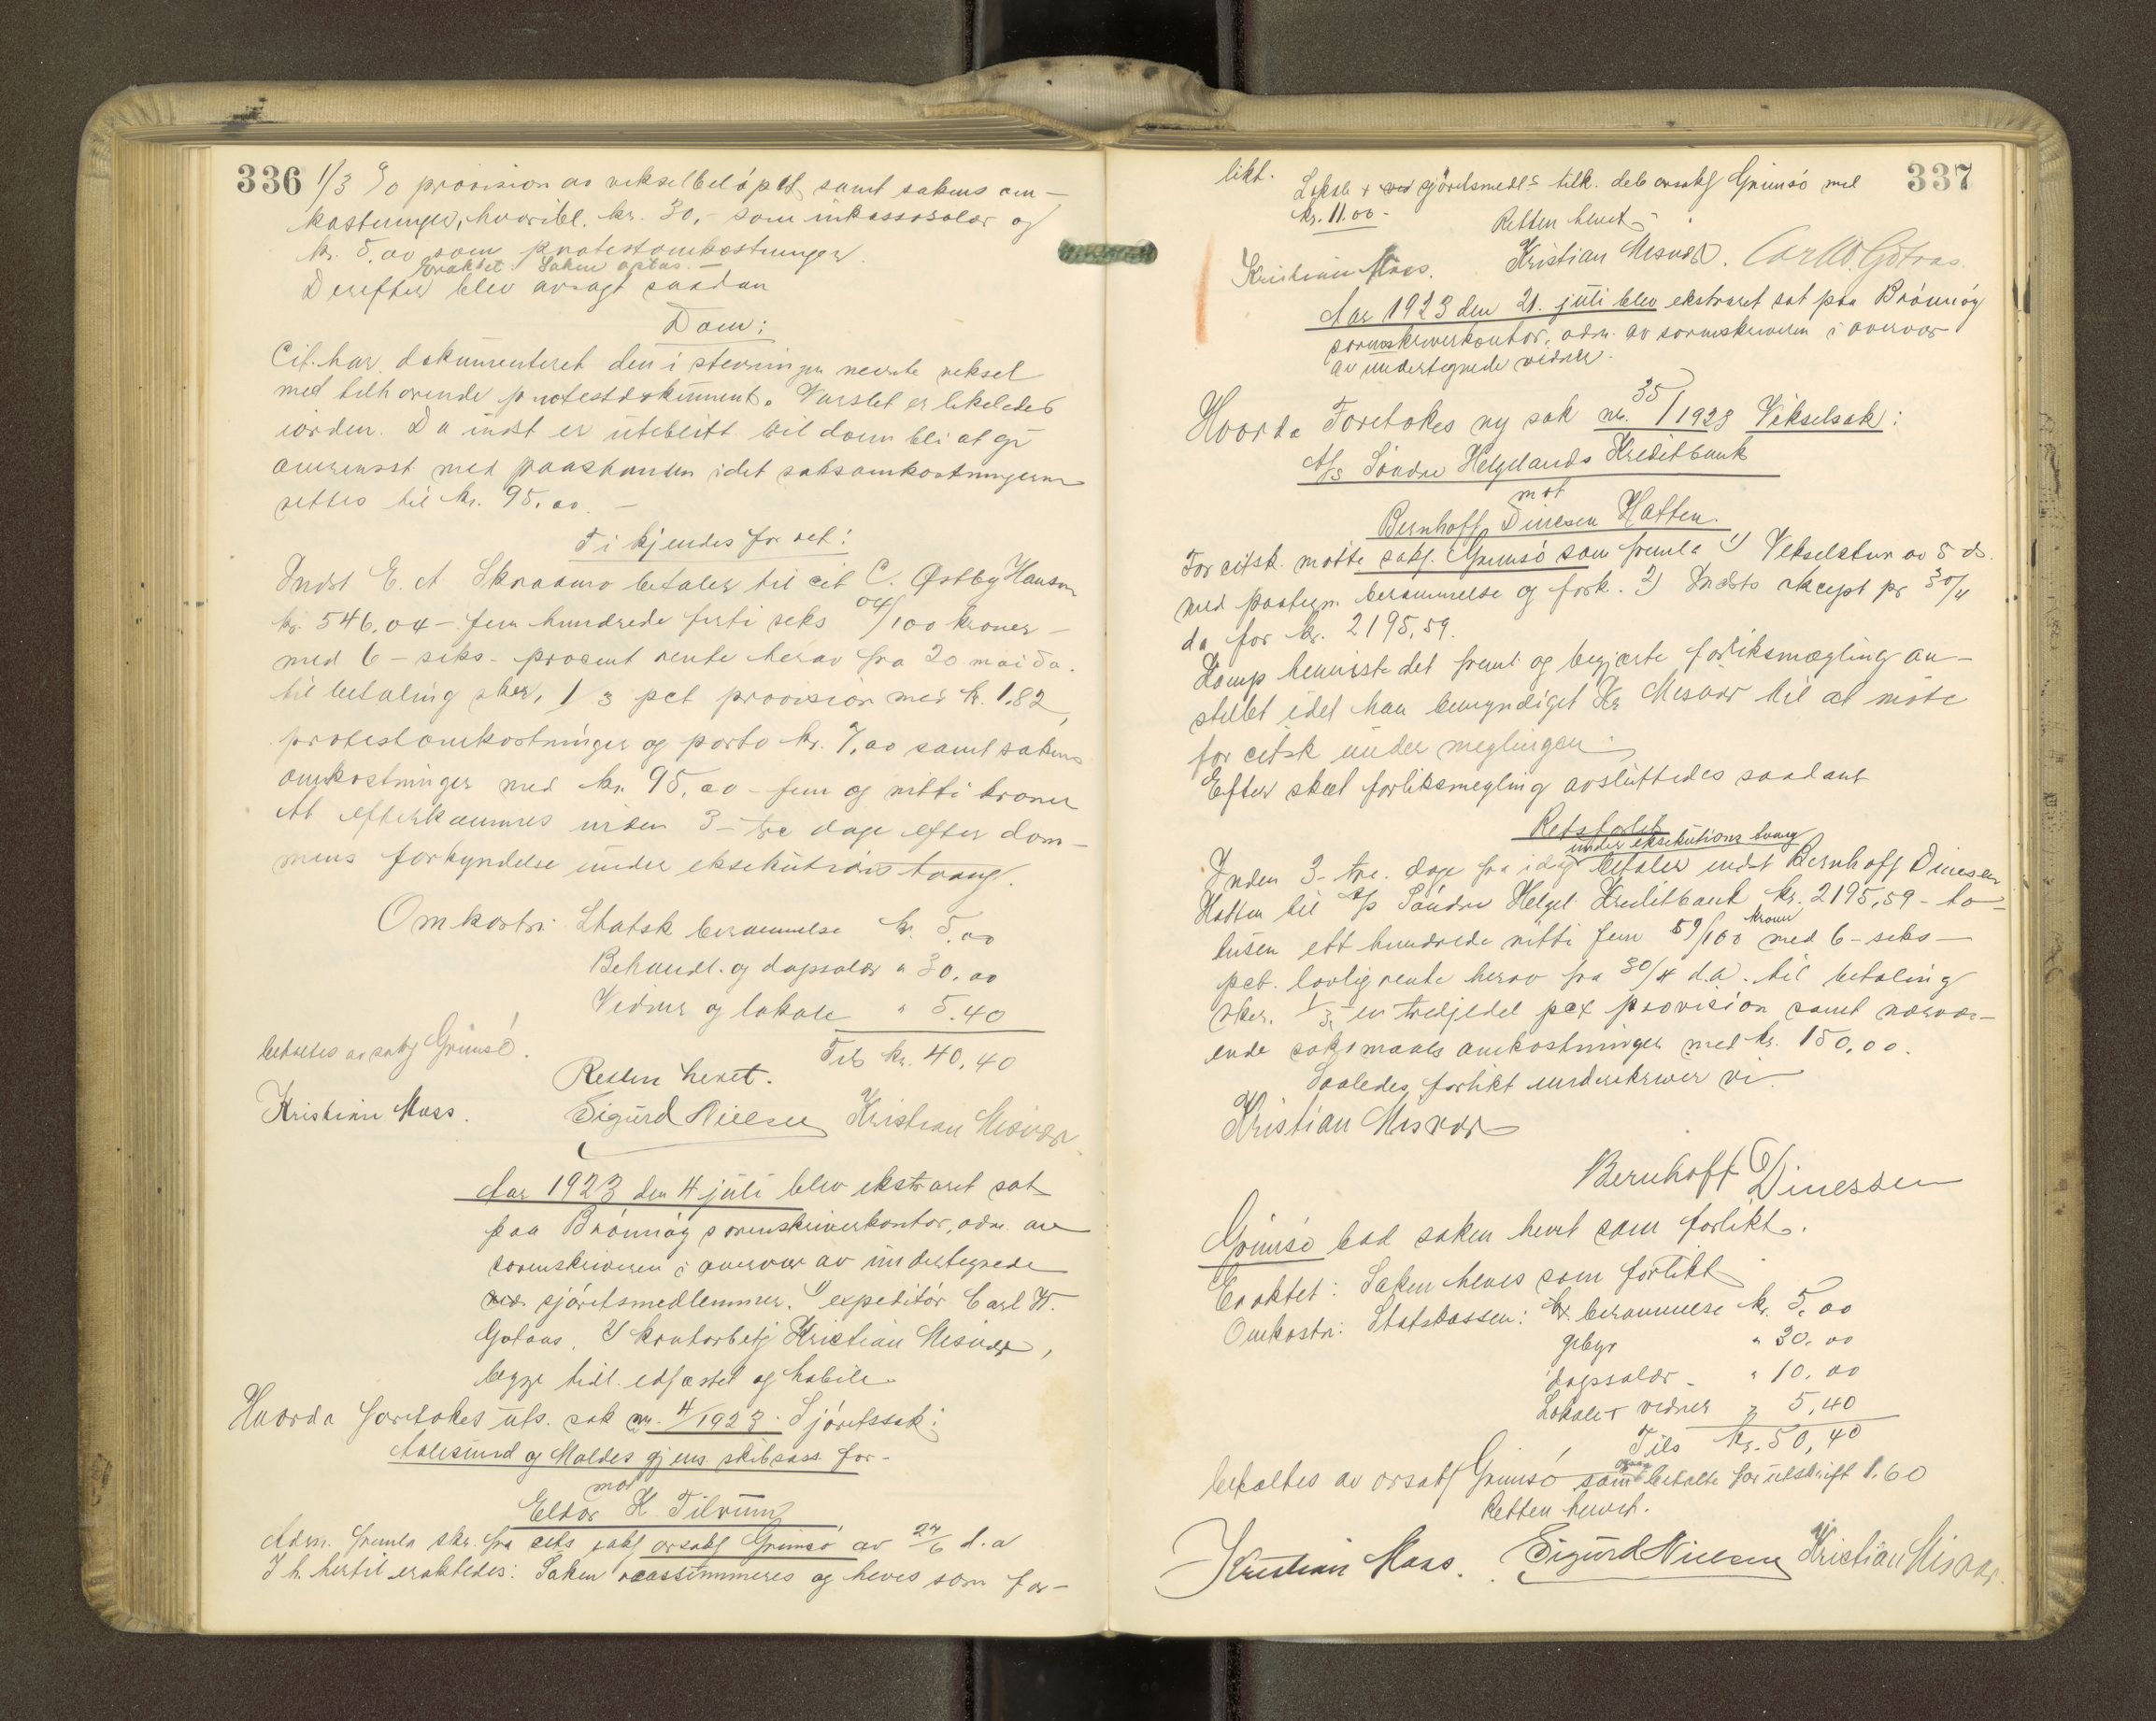 336
1/3 % provision av vekselbeløpet samt sakens om-
kostninger, hvoribl. kr. 30,- som inkassosalær og
kr. 5,00 som protestomkostninger.
Eraktet: Saken optas. -
Derefter blev avsagt saadan
Dom:
Cit. har dokumenteret den i stevningen nevnte veksel
med tilhørende protestdokument. Varslet er likeledes
iorden. Da indst er uteblitt vil dom bli at gi
overensst med paastanden idet saksomkostningerne
settes til kr. 95,00. -
Ti kjendes for ret:
Indst E. A Skraamo betaler til cit C. Østby Hansen
kr. 546,04 - fem hundrede firti seks 04/100 kroner -
med 6 - seks - procent rente herav fra 20 mai da.
til betaling sker, 1/3 pct provision med kr. 1.82,
protestomkostninger og porto kr. 7,00 samt sakens
omkostninger med kr. 95,00 - fem og nitti kroner
At efterkommes inden 3 - tre dage efter dom-
mens forkyndelse under eksekutions tvang.
Omkostn: Statsk berammelse kr. 5,00
Behandl. og dagsalær " 30.00
Vidner og lokale " 5.40
Tils kr. 40,40
betaltes av sakf Grimsø.
Retten hevet.
Kristian Moss. Sigurd Nielsen Kristian Misvær
Aar 1923 den 4 juli blev ekstraret sat
paa Brønnøy sorenskriverkontor, adm. av
sorenskriveren i overvær av undertegnede
sjøretsmedlemmer. 1) expeditør Carl W.
Gøtaas, 2) kontorbetj Kristian Misvær,
begge tidl. edfæstet og habile.
Hvorda foretokes uts. sak nr. 4/1923. Sjøretssak:
Aalesund og Moldes gjens. skibsass. for-
mot
Eldor K Tilrum
Adm. fremla skr. fra cits sakf orsakf Grimsø av 27/6 d.a
I h. hertil eraktedes: Saken reassummeres og heves som for-
337
likt.
Lokale + sjøretsmedl.s tilk. deb orsakf Grimsø med
kr. 11.00 -
Retten hevet -
Kristian Moss. Kristian Misvær. Carl W. Gøtaas.
Aar 1923 den 21. juli blev ekstraret sat paa Brønnøy
sorenskriverkontor, adm. av sorenskriveren i overvær
av undertegnede vidner.
Hvorda Foretokes ny sak nr. 35/1923 Vekselsak:
A/S Søndre Helgelands Kreditbank
mot
Bernhoff Dinesen Hatten.
For citsk. møtte sakf. Grimsø som fremla 1) Vekselstvn av 5 ds.
med paategn. berammelse og fork. 2) Indsts akcept pr 30/4
da for kr. 2195,59.
Komp henviste det freml og begjærte forliksmægling an-
stillet idet han bemyndiget Kr Misvær til at møte
for citsk under meglingen
Efter sket forliksmegling avsluttedes saadant
Retsforlik
under eksekutions tvang
Inden 3 - tre. dage fra idag betaler indst Bernhoff Dinesen
Hatten til A/S Søndre Helgel. Kreditbank kr. 2195,59 - to-
kroner
tusen ett hundrede nitti fem 59/100 med 6 - seks -
pct. lovlig rente herav fra 30/4 d.a. til betaling
sker. 1/3 - en tredjedel pct provision samt nærvær-
ende søksmaals omkostninger med kr. 150,00.
Saaledes forlikt underskriver vi
Kristian Misvær
Bernhoff Dinessen
Grimsø bad saken hevet som forlikt.
Eraktet: Saken heves som forlikt
Omkostn: Statskassen: berammelse kr. 5,00
gebyr " 30.00
dagsalær - " 10,00
Lokale + vidner " 5,40
Tils kr. 50,40
betaltes av orsakf Grimsø som betalte for utskrift 1.60
Retten hevet.
Kristian Moss. Sigurd Nielsen Kristian Misvær.